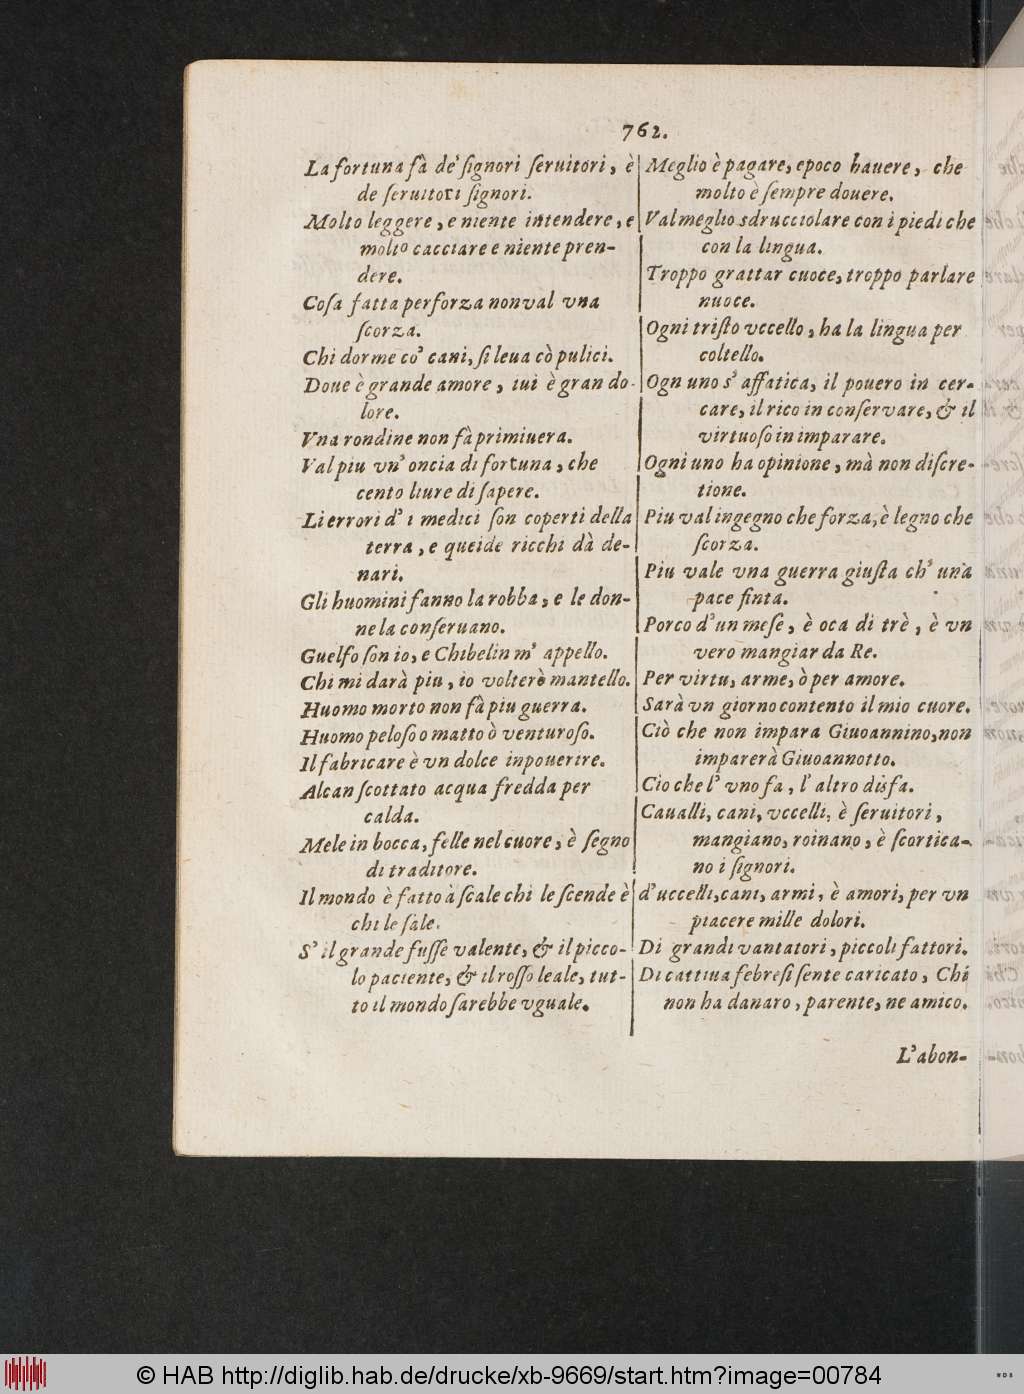 762.
La fortuna fà de' ſignori ſeruitori, è
de ſeruitori ſignori.
Molto leggere, e niente intendere, e
molto cacciare e niente pren-
dere.
Coſa fatta per forza non val vna
ſcorza.
Chi dorme co' cani, ſi leua cò pulici.
Doue è grande amore, iui è gran do-
lore.
Vna rondine non fà primiuera.
Val piu vn' oncia di fortuna, che
cento liure di ſapere.
Li errori d' i medici ſon coperti della
terra, e quei de ricchi dà de-
nari.
Gli huomini fanno la robba, e le don-
ne la conſeruano.
Guelfo ſon io, e Chibelin m' appello.
Chi mi darà piu, io volterè mantello.
Huomo morto non fà piu guerra.
Huomo peloſo o matto ò venturoſo.
Il fabricare è vn dolce inpouerire.
Al can ſcottato acqua fredda per
calda.
Mele in bocca, felle nel cuore, è ſegno
di traditore.
Il mondo è fatto à ſcale chi le ſcende è
chi le ſale.
S' il grande fuſſe valente, & il picco-
lo paciente, & il roſſo leale, tut-
to il mondo ſarebbe vguale.
Meglio è pagare, e poco hauere, che
molto è ſempre douere.
Val meglio sdrucciolare con i piedi che
con la lingua.
Troppo grattar cuoce, troppo parlare
nuoce.
Ogni triſto vccello, ha la lingua per
coltello.
Ogn uno s' affatica, il pouero in cer-
care, il rico in conſervare, & il
virtuoſo in imparare.
Ogni uno ha opinione, mà non diſcre-
tione.
Piu val ingegno che forza, è legno che
ſcorza.
Piu vale vna guerra giuſta ch' una
pace finta.
Porco d'un meſe, è oca di trè, è vn
vero mangiar da Re.
Per virtu, arme, ò per amore.
Sarà vn giorno contento il mio cuore.
Ciò che non impara Giuoannino, non
imparerà Giuoannotto.
Cio che l' vno fa, l' altro disfa.
Caualli, cani, vccelli, è ſeruitori,
mangiano, roinano, è ſcortica-
no i ſignori.
d'uccelli, cani, armi, è amori, per vn
piacere mille dolori.
Di grandi vantatori, piccoli fattori.
Di cattiua febre ſi ſente caricato, Chi
non ha danaro, parente, ne amico.
L'abon-
© HAB http://diglib.hab.de/drucke/xb-9669/start.htm?image=00784